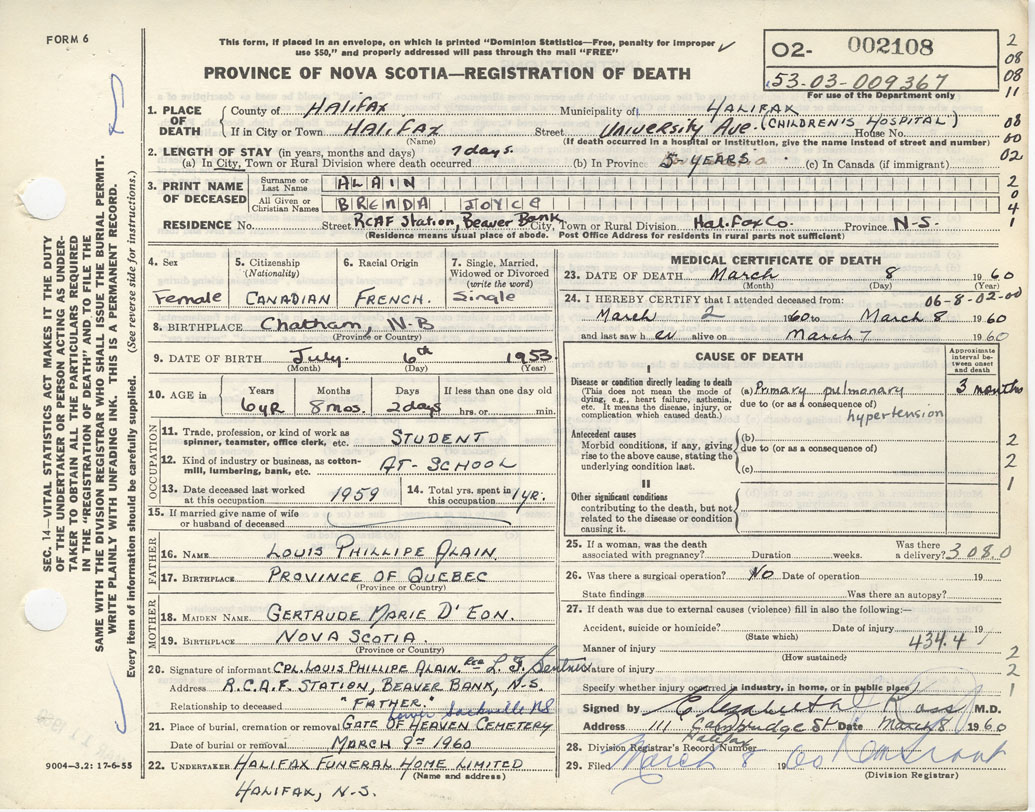 FORM 6
This form, if placed in an envelope, on which is printed "Dominion Statistics—Free, penalty for improper
use $50," and properly addressed will pass through the mail "FREE"
PROVINCE OF NOVA SCOTIA—REGISTRATION OF DEATH
02- 002108
53-03-009367
For use of the Department only
2
08
08
11
08
00
02
2
0
4
1
1. PLACE OF DEATH
County of Halifax
Municipality of HALIFAX
If in City or Town HALIFAX Street University Ave. (CHILDREN'S HOSPITAL) House No.
(Name) (If death occurred in a hospital or Institution, give the name instead of street and number)
2. LENGTH OF STAY (in years, months and days)
(a) In City, Town or Rural Division where death occurred 7 days. (b) In Province 5 YEARS (c) In Canada (if immigrant)
3. PRINT NAME OF DECEASED
Surname or Last Name ALAIN
All Given or Christian Names BRENDA JOYCE
RESIDENCE No. Street RCAF Station, Beaver Bank City, Town or Rural Division Halifax Co. Province N-S.
(Residence means usual place of abode. Post Office Address for residents in rural parts not sufficient)
4. Sex
Female
5. Citizenship (Nationality)
CANADIAN
6. Racial Origin
FRENCH.
7. Single, Married, Widowed or Divorced (write the word)
Single
8. BIRTHPLACE Chatham, N-B
(Province or Country)
9. DATE OF BIRTH July 6th 1953
(Month) (Day) (Year)
10. AGE in
Years Months Days If less than one day old
6 yr 8 mos. 2 days hrs. or min.
OCCUPATION
11. Trade, profession, or kind of work as spinner, teamster, office clerk, etc. STUDENT
12. Kind of industry or business, as cotton-mill, lumbering, bank, etc. AT-SCHOOL
13. Date deceased last worked at this occupation 1959
14. Total yrs. spent in this occupation 1 yr.
15. If married give name of wife or husband of deceased
FATHER
16. NAME LOUIS PHILLIPE ALAIN
17. BIRTHPLACE PROVINCE OF QUEBEC
(Province or Country)
MOTHER
18. MAIDEN NAME GERTRUDE MARIE D'EON.
19. BIRTHPLACE NOVA SCOTIA.
(Province or Country)
20. Signature of informant CPL. LOUIS PHILLIPE ALAIN. Per
Address R.C.A.F. STATION, BEAVER BANK, N-S.
Relationship to deceased "FATHER.
Lower Sackville NS
21. Place of burial, cremation or removal GATE OF HEAVEN CEMETERY
Date of burial or removal MARCH 9th 1960
22. UNDERTAKER HALIFAX FUNERAL HOME LIMITED
(Name and address)
HALIFAX, N-S.
MEDICAL CERTIFICATE OF DEATH
23. DATE OF DEATH March 8 1960
(Month) (Day) (Year)
24. I HEREBY CERTIFY that I attended deceased from: 06-8-02-00
March 2 1960 to March 8 1960
and last saw her alive on March 7 1960
CAUSE OF DEATH
Approximate interval between onset and death
I
Disease or condition directly leading to death
(This does not mean the mode of dying, e.g., heart failure, asthenia, etc. It means the disease, injury, or complication which caused death.)
(a) Primary pulmonary hypertension 3 months
due to (or as a consequence of)
Antecedent causes
Morbid conditions, if any, giving rise to the above cause, stating the underlying condition last.
(b)
due to (or as a consequence of)
(c)
II
Other significant conditions
contributing to the death, but not related to the disease or condition causing it.
2
2
1
25. If a woman, was the death associated with pregnancy? Duration weeks. Was there a delivery? 308.0
26. Was there a surgical operation? No Date of operation 19
State findings Was there an autopsy?
27. If death was due to external causes (violence) fill in also the following:—
Accident, suicide or homicide? Date of injury 19
(State which)
Manner of injury 434.4
(How sustained)
Nature of injury
Specify whether injury occurred in industry, in home, or in public place
2
2
1
Signed by Elizabeth Ross M.D.
Address 111 Cambridge St Halifax Date March 8 1960
28. Division Registrar's Record Number
29. Filed March 8 1960
(Division Registrar)
SEC. 14—VITAL STATISTICS ACT MAKES IT THE DUTY
OF THE UNDERTAKER OR PERSON ACTING AS UNDER-
TAKER TO OBTAIN ALL THE PARTICULARS REQUIRED
IN THE "REGISTRATION OF DEATH" AND TO FILE THE
SAME WITH THE DIVISION REGISTRAR WHO SHALL ISSUE THE BURIAL PERMIT.
WRITE PLAINLY WITH UNFADING INK. THIS IS A PERMANENT RECORD.
Every item of information should be carefully supplied. (See reverse side for instructions.)
9004—3.2: 17-6-55